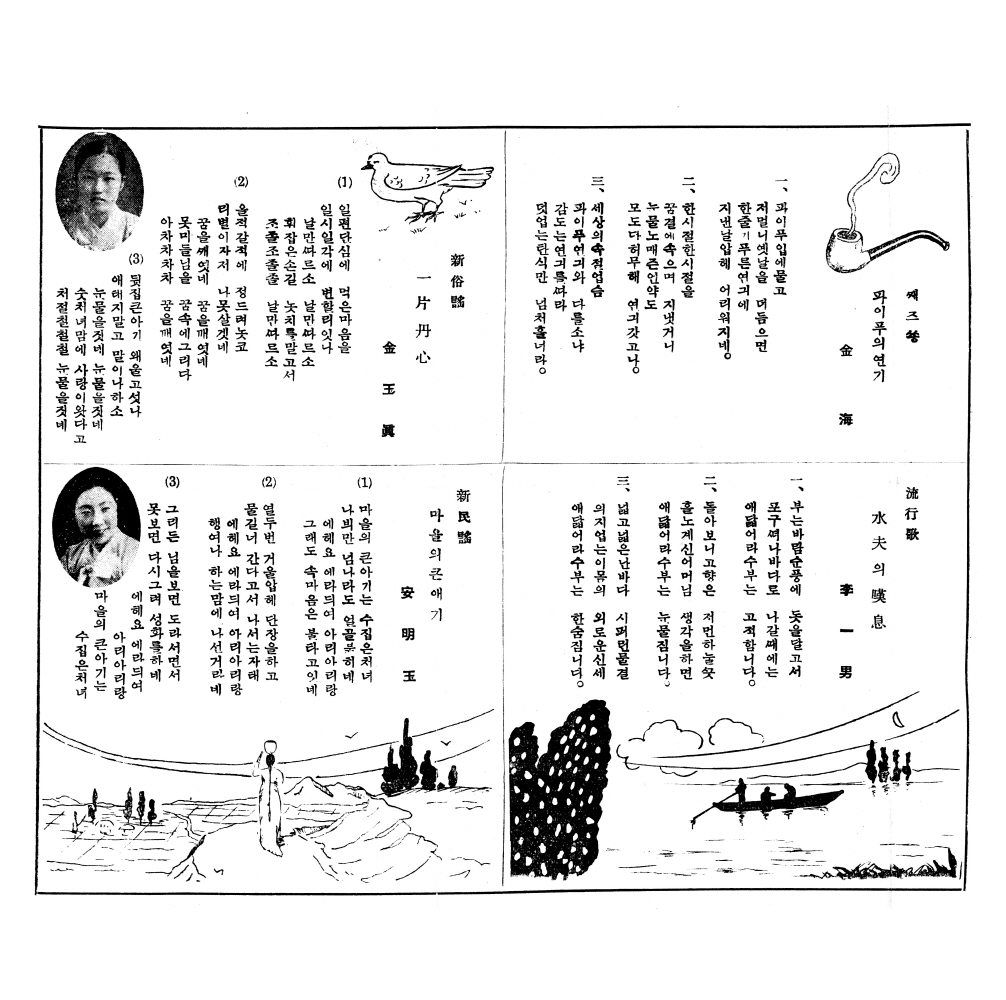 째즈쏭
파이푸의연기
金海
一、파이푸입에물고
저멀니옛날을 더듬으면
한줄기푸른연긔에
지낸날압헤 어리워지네。
二、한시절한시절을
꿈결에속으며 지냇거니
눈물노매즌인약도
모도다허무해 연긔갓고나。
三、세상의속절업슴
파이푸연긔와 다를소냐
감도는연긔를싸라
덧업는탄식만 넘처흘너라。
新俗謠
一片丹心
金玉眞
(1) 일편단심에 먹은마음을
일시일각에 변할리잇나
날만싸르소 날만싸르소
휘잡은손길 놋치를말고서
조졸조졸졸 날만싸르소
(2) 올적갈적에 정드려놋코
리별이자저 나못살겟네
꿈을깨엿네 꿈을깨엿네
못미들님을 꿈속에그리다
아차차차차 꿈을깨엿네
(3) 뒷집큰아기 왜울고섯나
애태지말고 말이나하소
눈물을짓네 눈물을짓네
숫처녀맘에 사랑이왓다고
처절철철철 눈물을짓네
流行歌
水夫의嘆息
李一男
一、부는바람순풍에 돗을달고서
포구써나바다로 나갈째에는
애닯어라수부는 고적합니다。
二、돌아보니고향은 저먼하눌씃
홀노계신어머님 생각을하면
애닯어라수부는 눈물집니다。
三、넓고넓은난바다 시퍼런물결
의지업는이몸의 외로운신세
애닯어라수부는 한숨집니다。
新民謠
마을의큰애기
安明玉
(1) 마을의 큰아기는 수집은처녀
나븨만 넘나라도 얼골붉히네
에헤요 에라듸여 아리아리랑
그래도 속마음은 불타고잇네
(2) 열두번 거울압헤 단장을하고
물길너 간다고서 나서는자태
에헤요 에라듸여 아리아리랑
행여나 하는맘에 나선거라네
(3) 그리든 님을보면 도라서면서
못보면 다시그려 성화를하네
에헤요 에라듸여
아리아리랑
마을의 큰아기는
수집은처녀